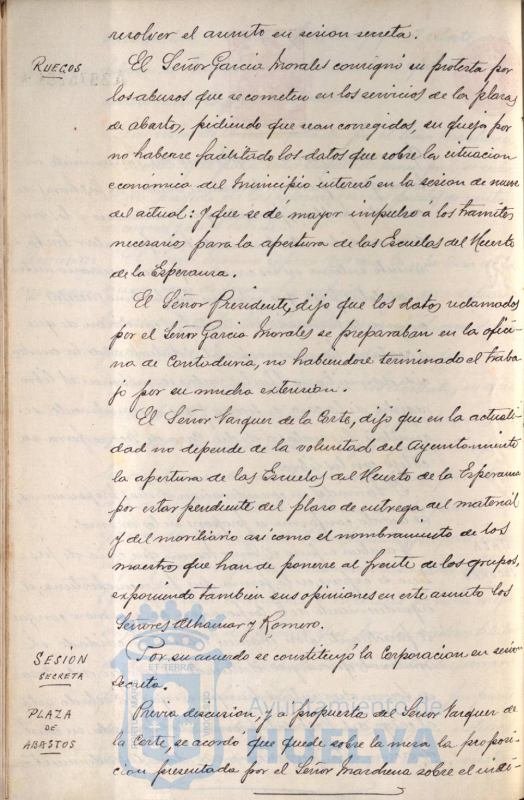 resolver el asunto en sesion secreta.
RUEGOS
El Señor Garcia Morales consignó su protesta por
los abusos que se cometen en los servicios de la plaza
de abastos, pidiendo que sean corregidos, su queja por
no haberse facilitado los datos que sobre la situacion
económica del Municipio interesó en la sesion de nueve
del actual: y que se dé mayor impulso á los tramites
necesarios para la apertura de las Escuelas del Huerto
de la Esperanza.
El Señor Presidente, dijo que los datos reclamados
por el Señor Garcia Morales se preparaban en la ofici-
na de Contaduria, no habiendose terminado el traba-
jo por su mucha extension.
El Señor Vazquez de la Corte, dijo que en la actuali-
dad no depende de la voluntad del Ayuntamiento
la apertura de las Escuelas del Huerto de la Esperanza
por estar pendiente del plazo de entrega del material
y del moviliario asi como el nombramiento de los
maestros que han de ponerse al frente de los grupos,
exponiendo tambien sus opiniones en este asunto los
Señores Alhamar y Romero.
SESIÓN
SECRETA
Por su acuerdo se constituyó la Corporacion en sesion
secreta.
PLAZA
DE
ABASTOS
Previa discusion, y a propuesta del Señor Vazquez de
la Corte, se acordó que quede sobre la mesa la proposi-
cion presentada por el Señor Marchena sobre el indi-
ET TERRÆ
Ayuntamiento de
HUELVA